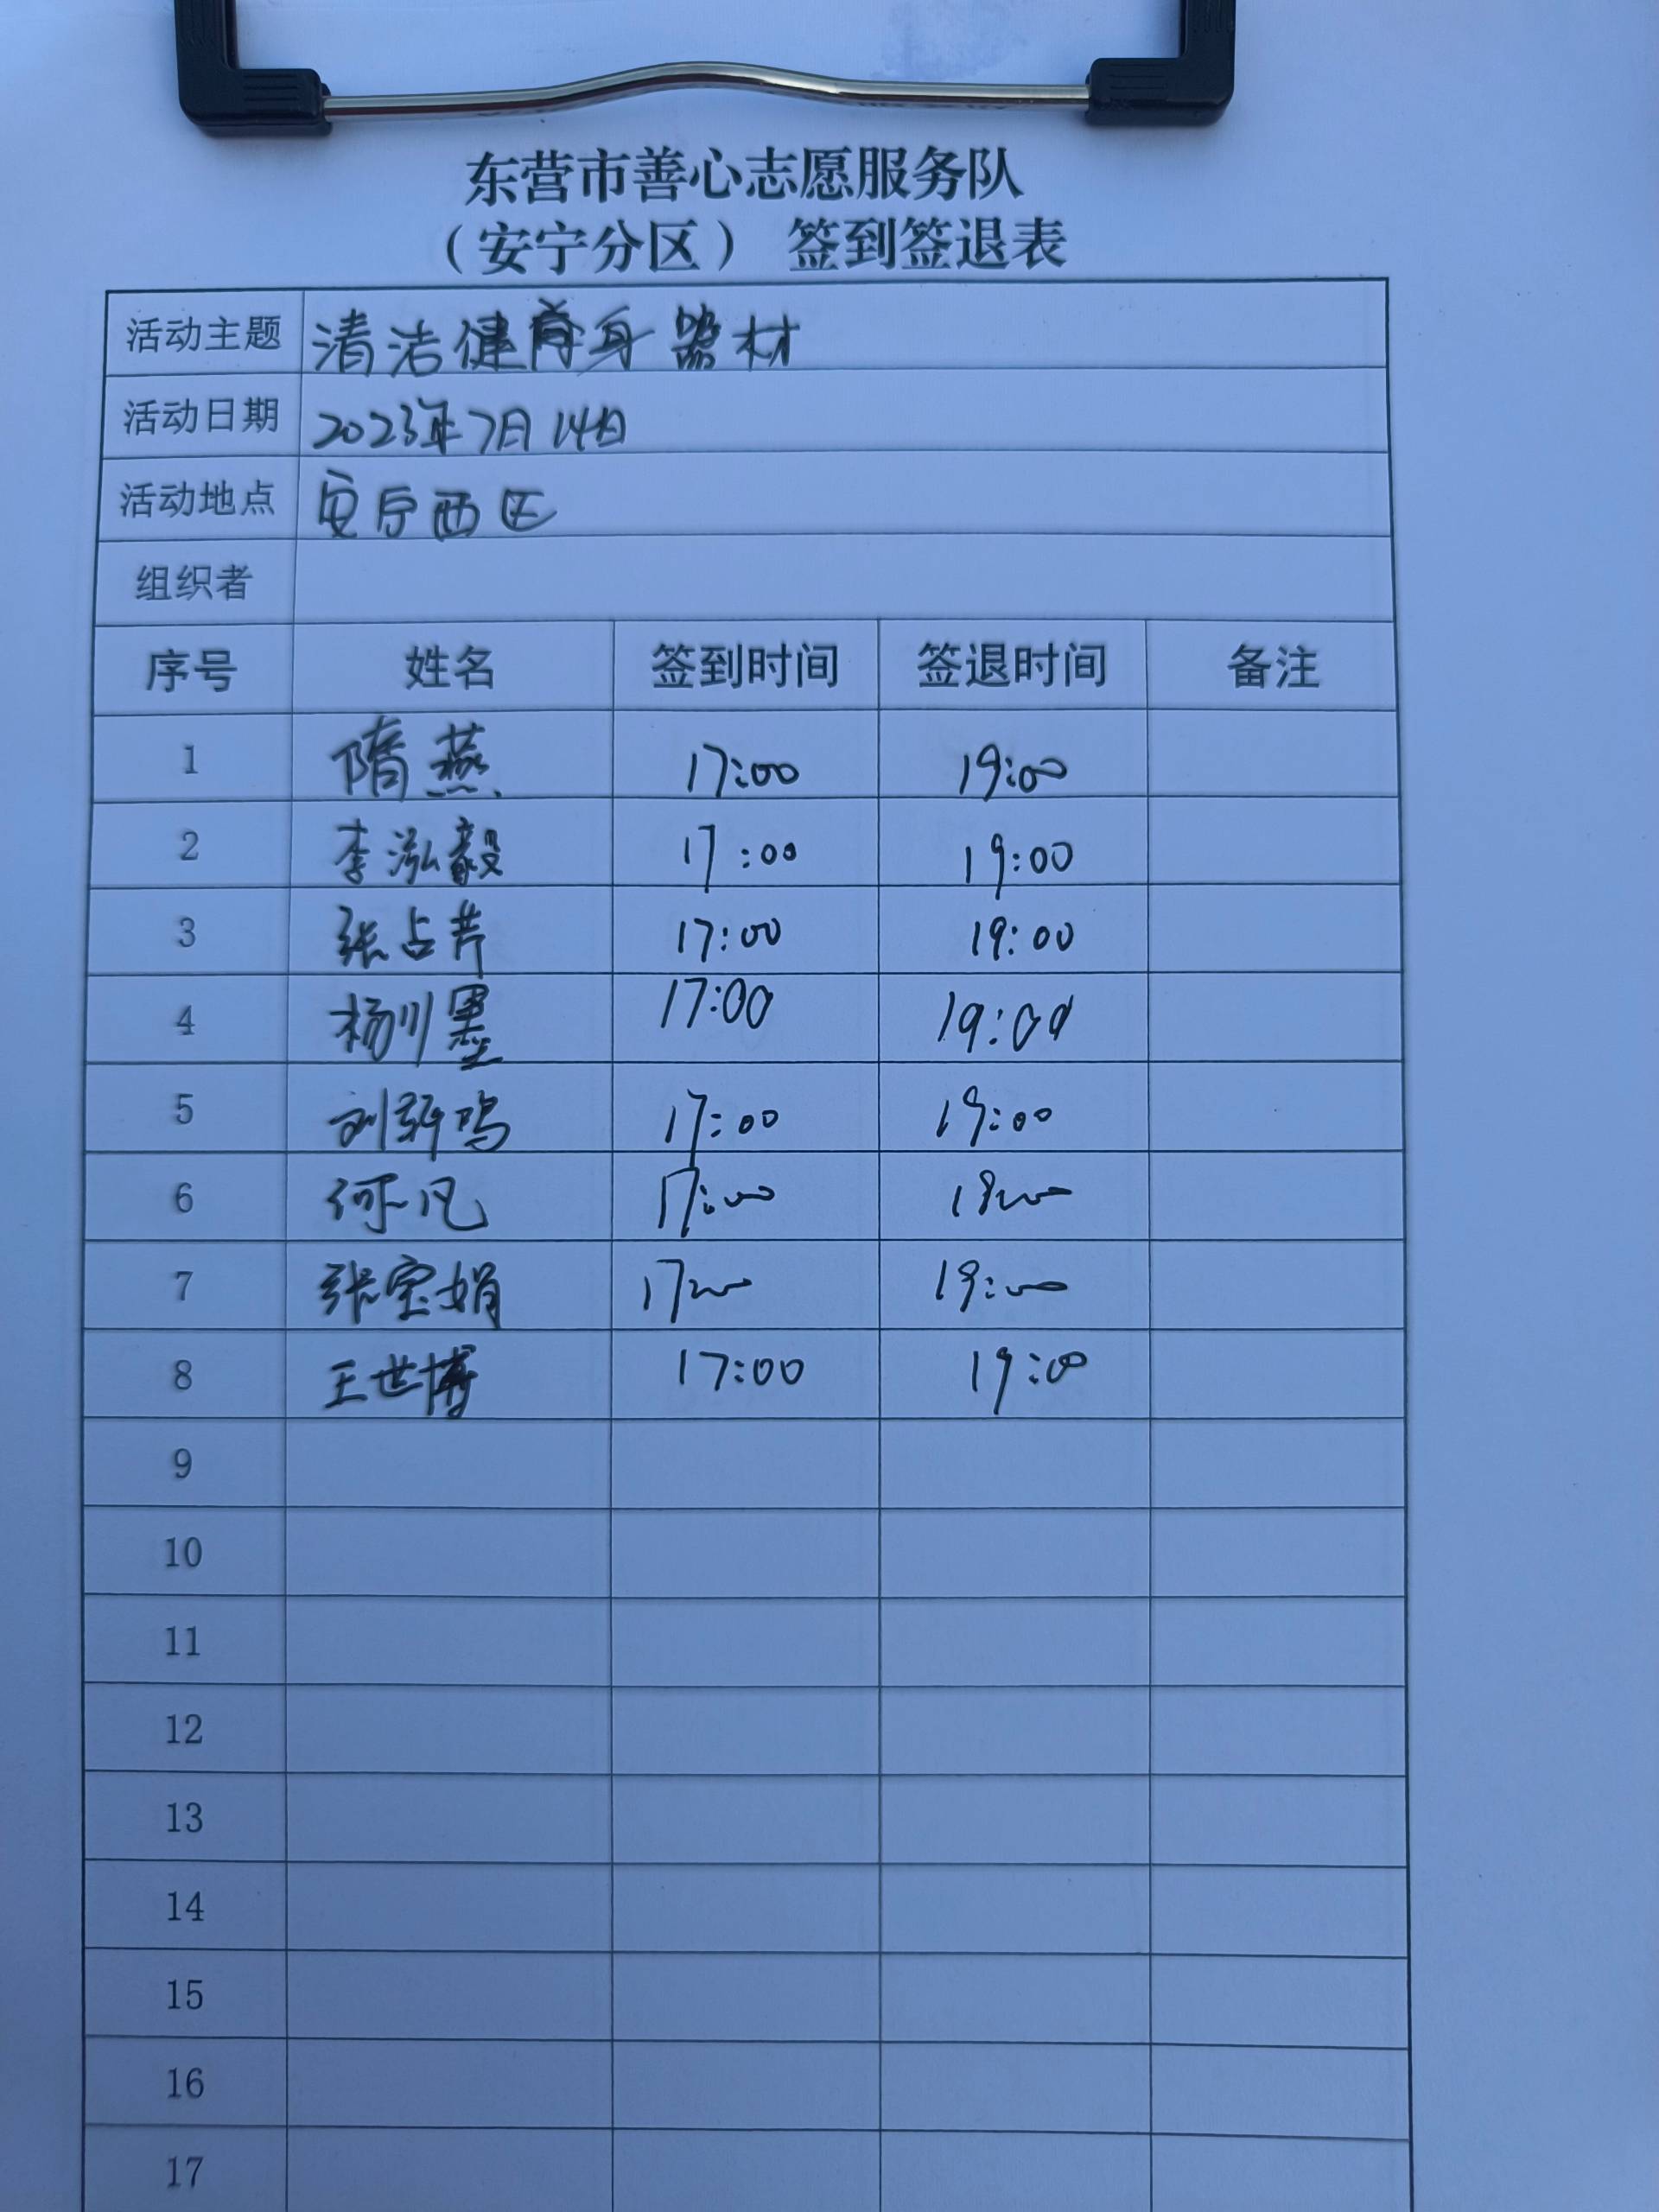 东营市善心志愿服务队
（安宁分区） 签到签退表
活动主题 清洁健身器材
活动日期 2023年7月14日
活动地点 安宁西区
组织者
序号 姓名 签到时间 签退时间 备注
1 隋燕 17:00 19:00
2 李泓毅 17:00 19:00
3 张占芹 17:00 19:00
4 杨川墨 17:00 19:00
5 刘轩鸣 17:00 19:00
6 何凡 17:00 19:00
7 张宝娟 17:00 19:00
8 王世博 17:00 19:00
9
10
11
12
13
14
15
16
17